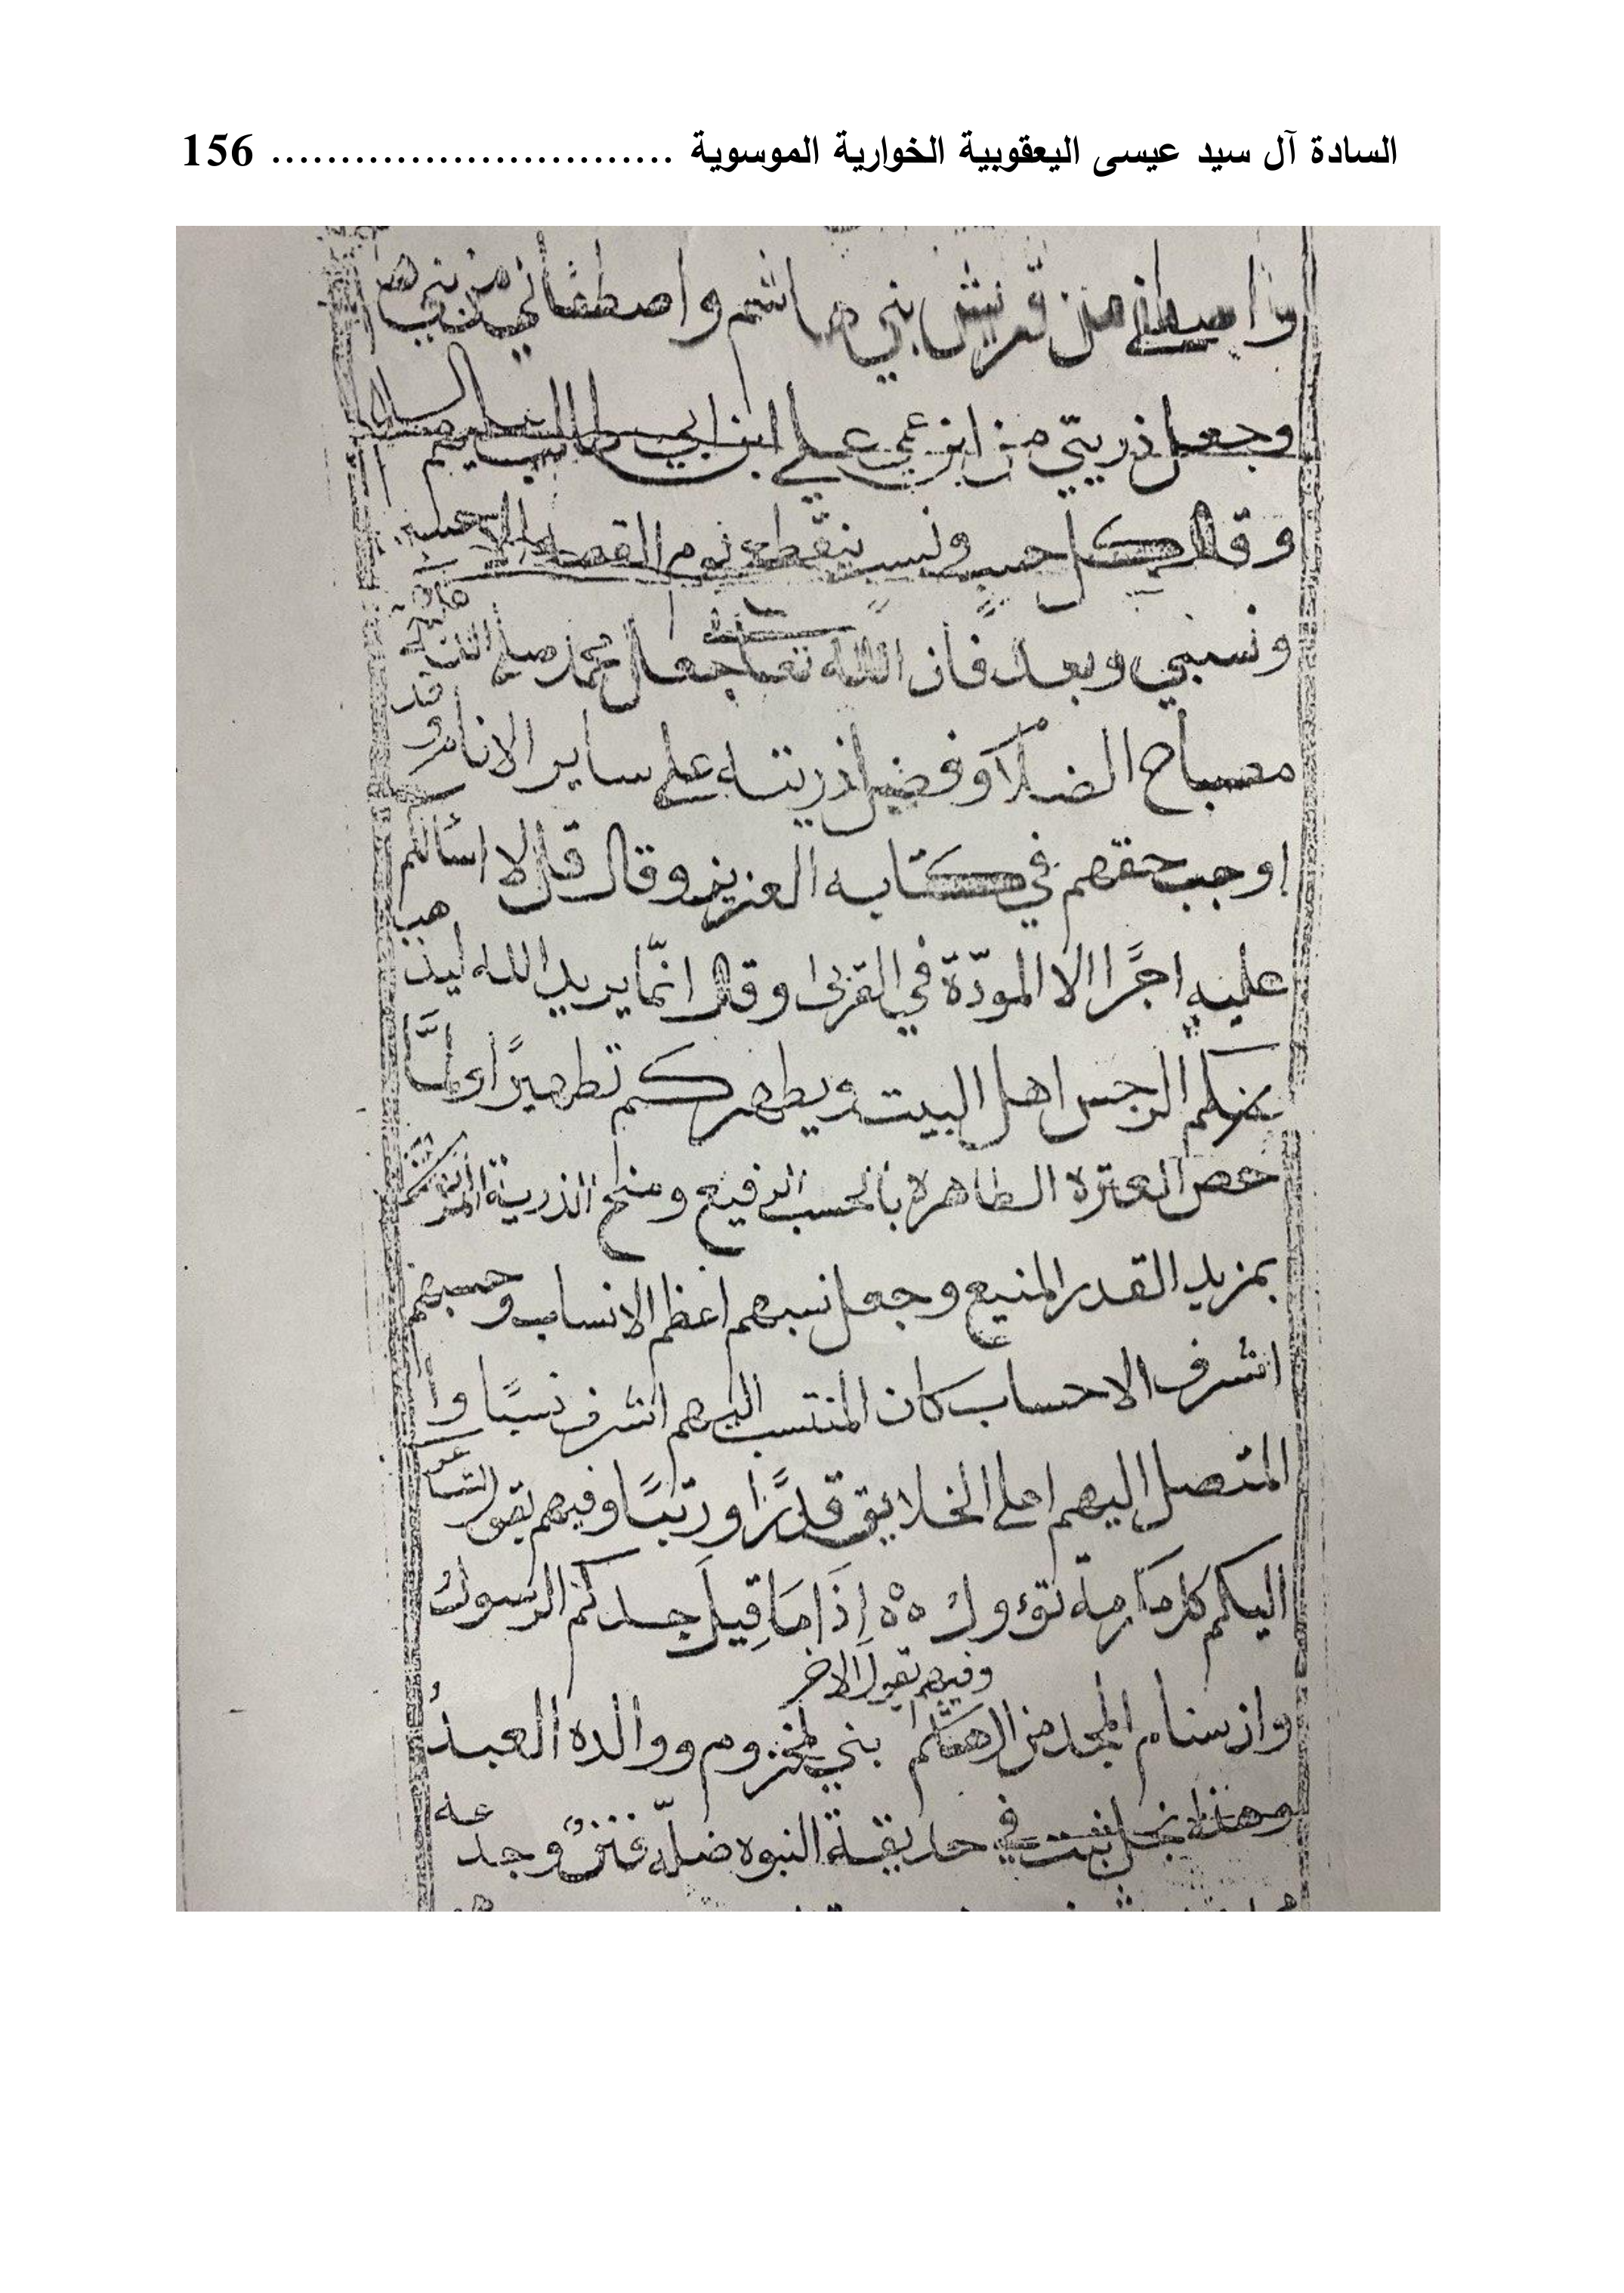 السادة آل سيد عيسى اليعقوبية الخوارية الموسوية ............................. 156
واصطفى من قريش بني هاشم واصطفاني من بني ها
وجعل ذريتي من ابن عمي علي ابن ابي طالب
وقال كل حسب ونسب ينقطع يوم الا حسبي
ونسبي وبعد فان الله تعا جعل محمد صلى الله
مصباح الضلا وفضل ذريته على ساير الانام وقد
اوجب حقهم في كتابه العزيز وقال قل لا اسالكم
عليه اجرًا الا المودّة في القربى وقال انمّا يريد الله ليذهب
عنكم الرجس اهل البيت ويطهركم تطهيرًا ولمَّا
خص العترة الطاهرة بالحسب الرفيع ومنح الذرية
بمزيد القدر المنيع وجعل نسبهم اعظم الانساب وحسبهم
اشرف الاحساب كان المنتسب اليهم اشرف نسبًا وا
المتصل اليهم اعلى الخلايق قدرًا ورتبًا وفيهم يقول الشاعر
اليكم كل مكرمة تؤول ه ه اِذَا مَا قِيلَ جدكم الرسولُ
وفيهم يقول الاخر
وان سنام المجد من ال هاشم بني مخزوم ووالده العبدُ
وهذا نجل نبت في حديقة النبوه